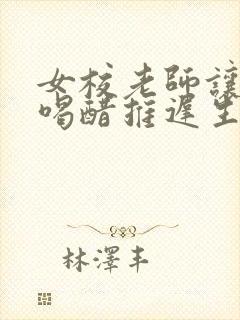 女校老師讓
喝醋推遲生
林澤丰